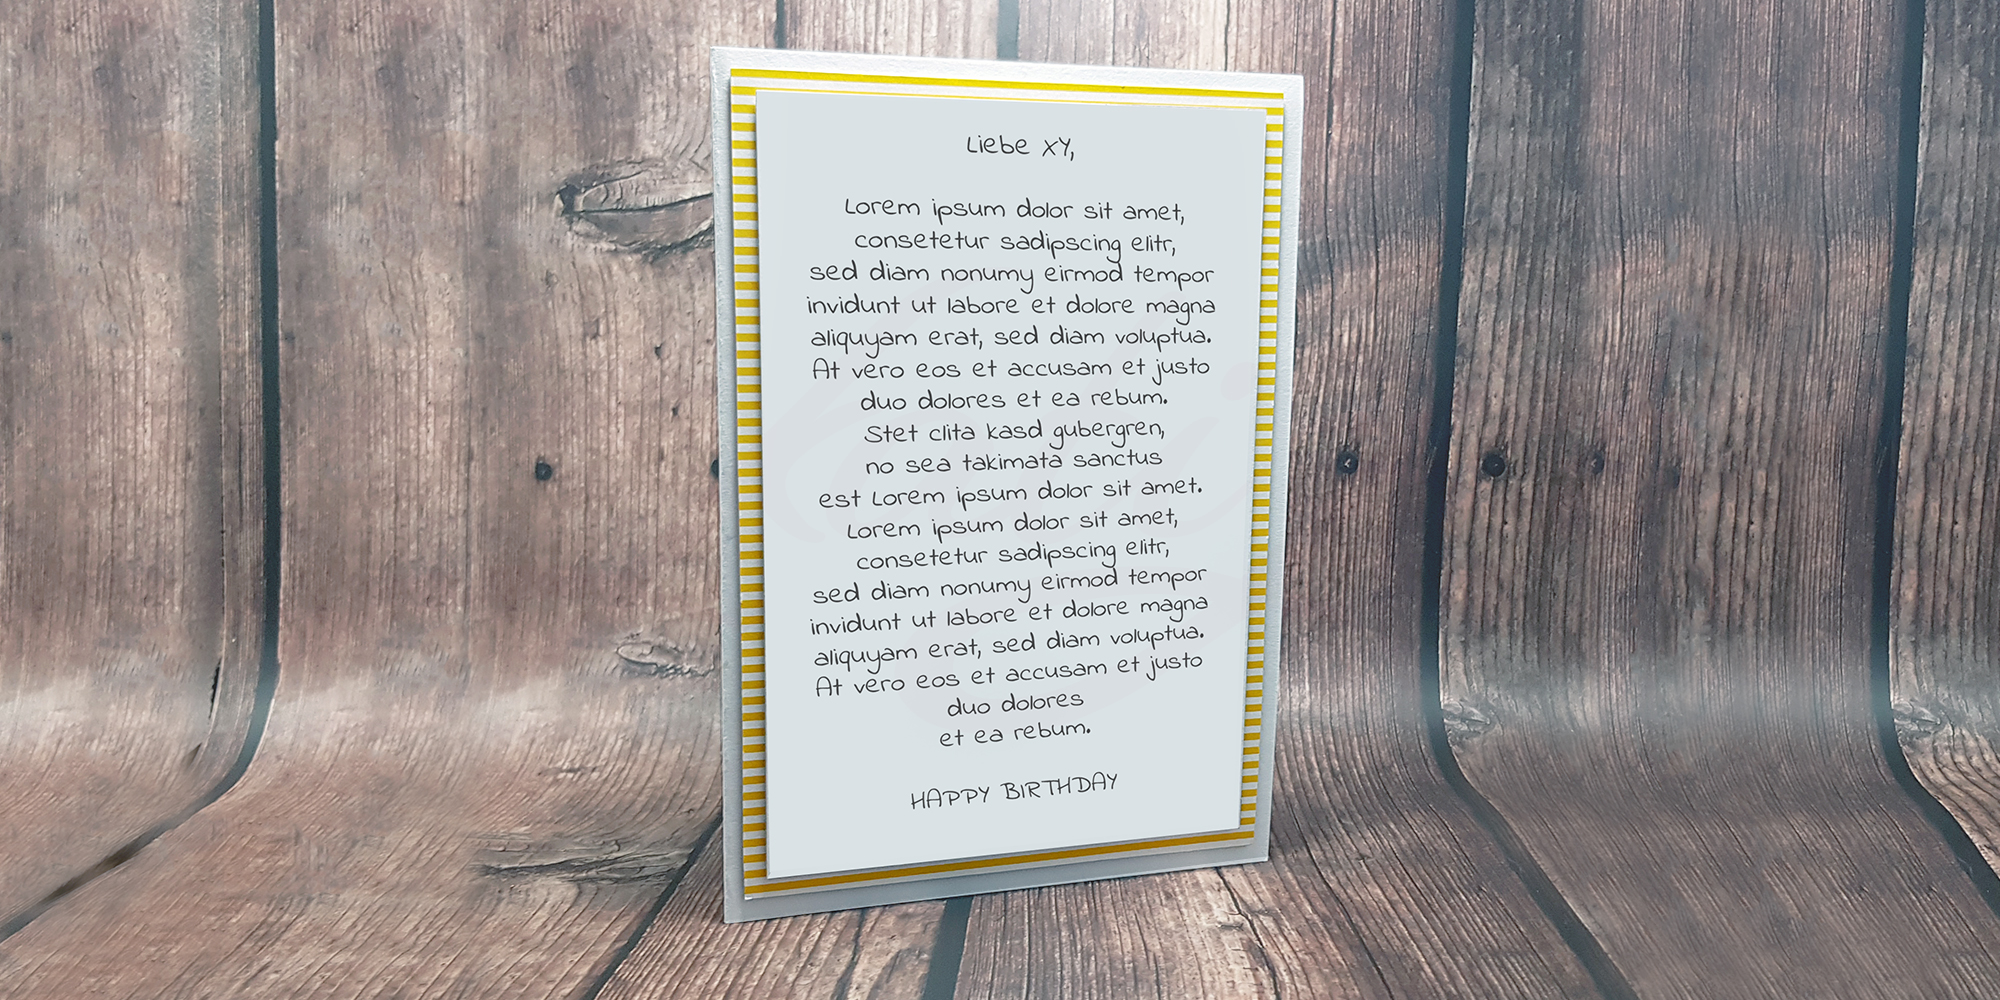 Liebe XY,
Lorem ipsum dolor sit amet,
consetetur sadipscing elitr,
sed diam nonumy eirmod tempor
invidunt ut labore et dolore magna
aliquyam erat, sed diam voluptua.
At vero eos et accusam et justo
duo dolores et ea rebum.
Stet clita kasd gubergren,
no sea takimata sanctus
est Lorem ipsum dolor sit amet.
Lorem ipsum dolor sit amet,
consetetur sadipscing elitr,
sed diam nonumy eirmod tempor
invidunt ut labore et dolore magna
aliquyam erat, sed diam voluptua.
At vero eos et accusam et justo
duo dolores
et ea rebum.
HAPPY BIRTHDAY